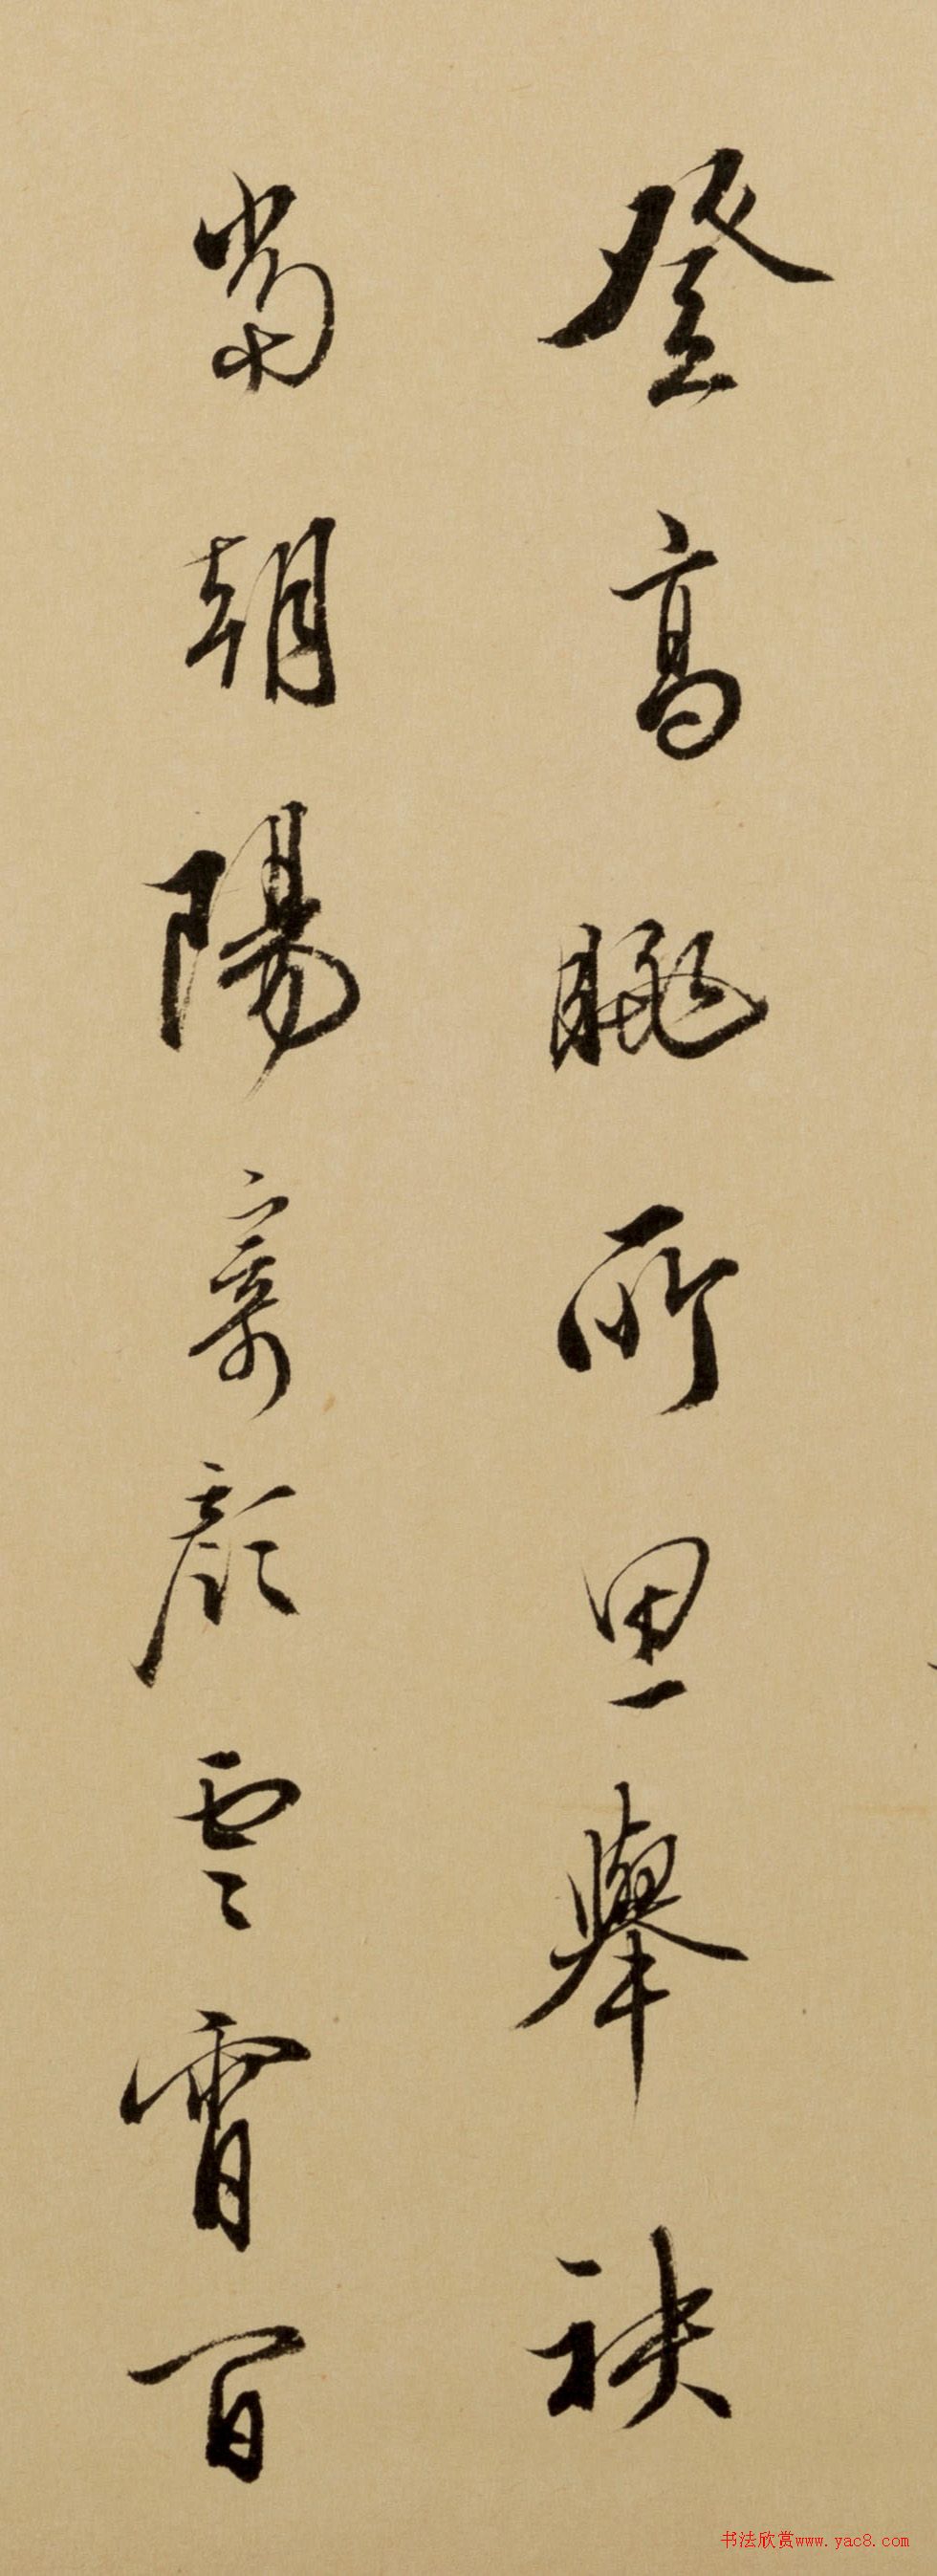 登高眺所思舉袂
當朝陽寄顏雲霄間
书法欣赏www.yac8.com